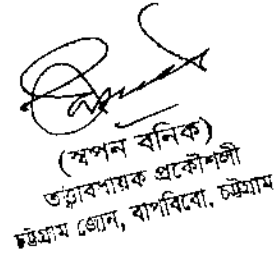 (স্বপন বনিক)
তত্ত্বাবধায়ক প্রকৌশলী
চট্টগ্রাম জোন, বাপবিবো, চট্টগ্রাম